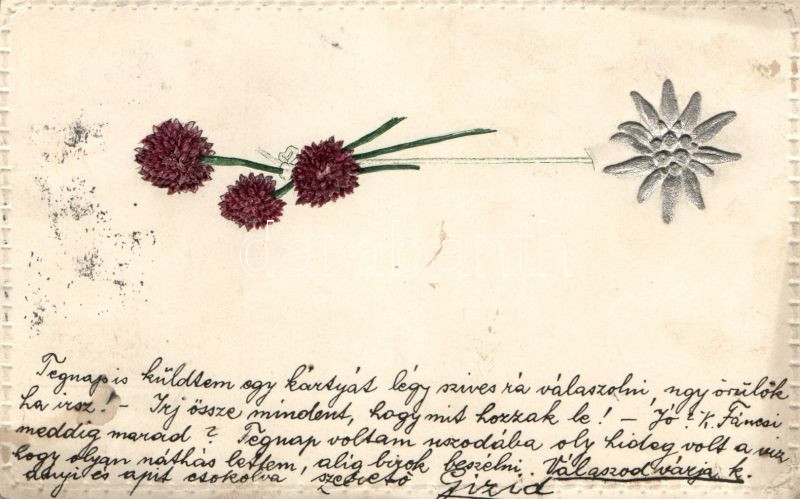 Tegnap is küldtem egy kártyát légy szives rá válaszolni, ugy örülök
ha irsz! - Irj össze mindent, hogy mit hozzak le! - Jó? K. Fáncsi
meddig marad? Tegnap voltam uszodába oly hideg volt a viz
hogy olyan náthás lettem, alig birok beszélni. Válaszod várja k.
anyi és apit csokolva szerető Gizid